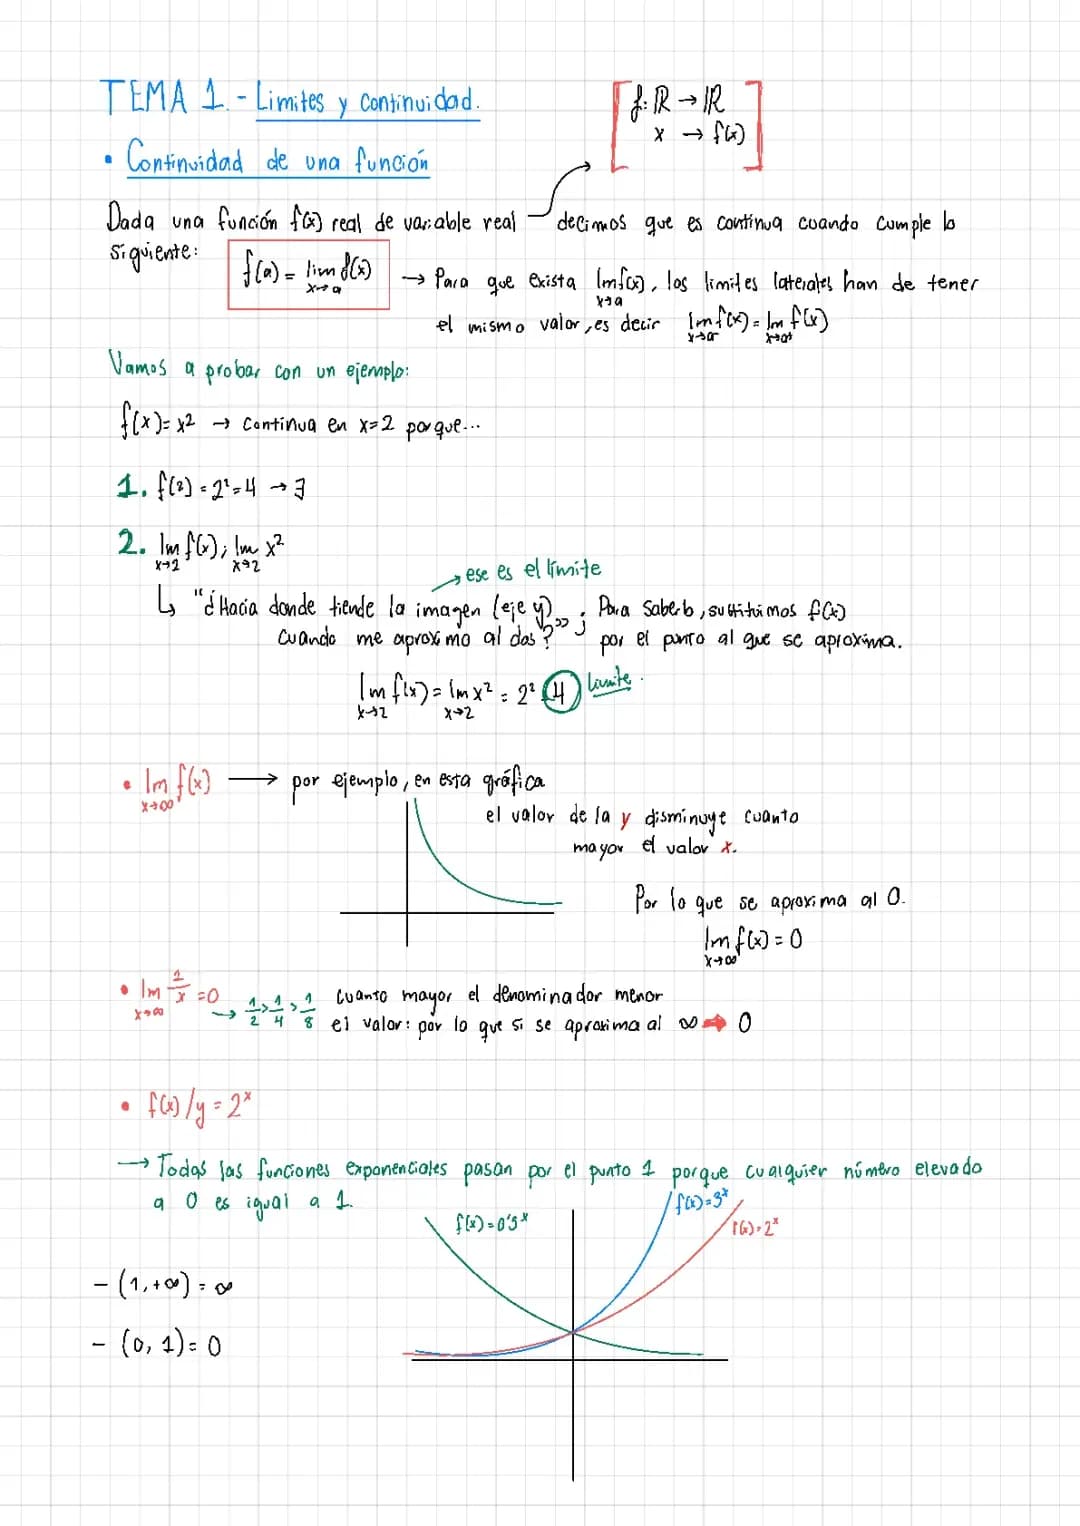 TEMA 1.- Limites y continuidad.
f: ℝ → ℝ
x → f(x)
• Continuidad de una función
Dada una función f(x) real de variable real decimos que es continua cuando cumple lo
siguiente:
f(a) = lim f(x)
x→a
→ Para que exista lim f(x), los limites laterales han de tener
x→a
el mismo valor, es decir lim f(x) = lim f(x)
x→a⁻ x→a⁺
Vamos a probar con un ejemplo:
f(x) = x² → Continua en x=2 porque...
1. f(2) = 2² = 4 → ∃
2. lim f(x); lim x²
x→2 x→2
→ ese es el límite
↳ "¿Hacia donde tiende la imagen (eje y)
cuando me aproximo al dos?"; Para saberlo, sustituimos f(x)
por el punto al que se aproxima.
lim f(x) = lim x² = 2² 4 limite.
x→2 x→2
• lim f(x) → por ejemplo, en esta gráfica
x→∞
el valor de la y disminuye cuanto
mayor el valor x.
Por lo que se aproxima al 0.
lim f(x) = 0
x→∞
• lim 1/x = 0
x→∞
→ 1/2 > 1/4 > 1/8 cuanto mayor el denominador menor
el valor: por lo que si se aproxima al ∞ → 0
• f(x)/y = 2ˣ
→ Todas las funciones exponenciales pasan por el punto 1 porque cualquier número elevado
a 0 es igual a 1.
f(x) = 3ˣ
f(x) = 0'5ˣ
f(x) = 2ˣ
- (1, +∞) = ∞
- (0, 1) = 0